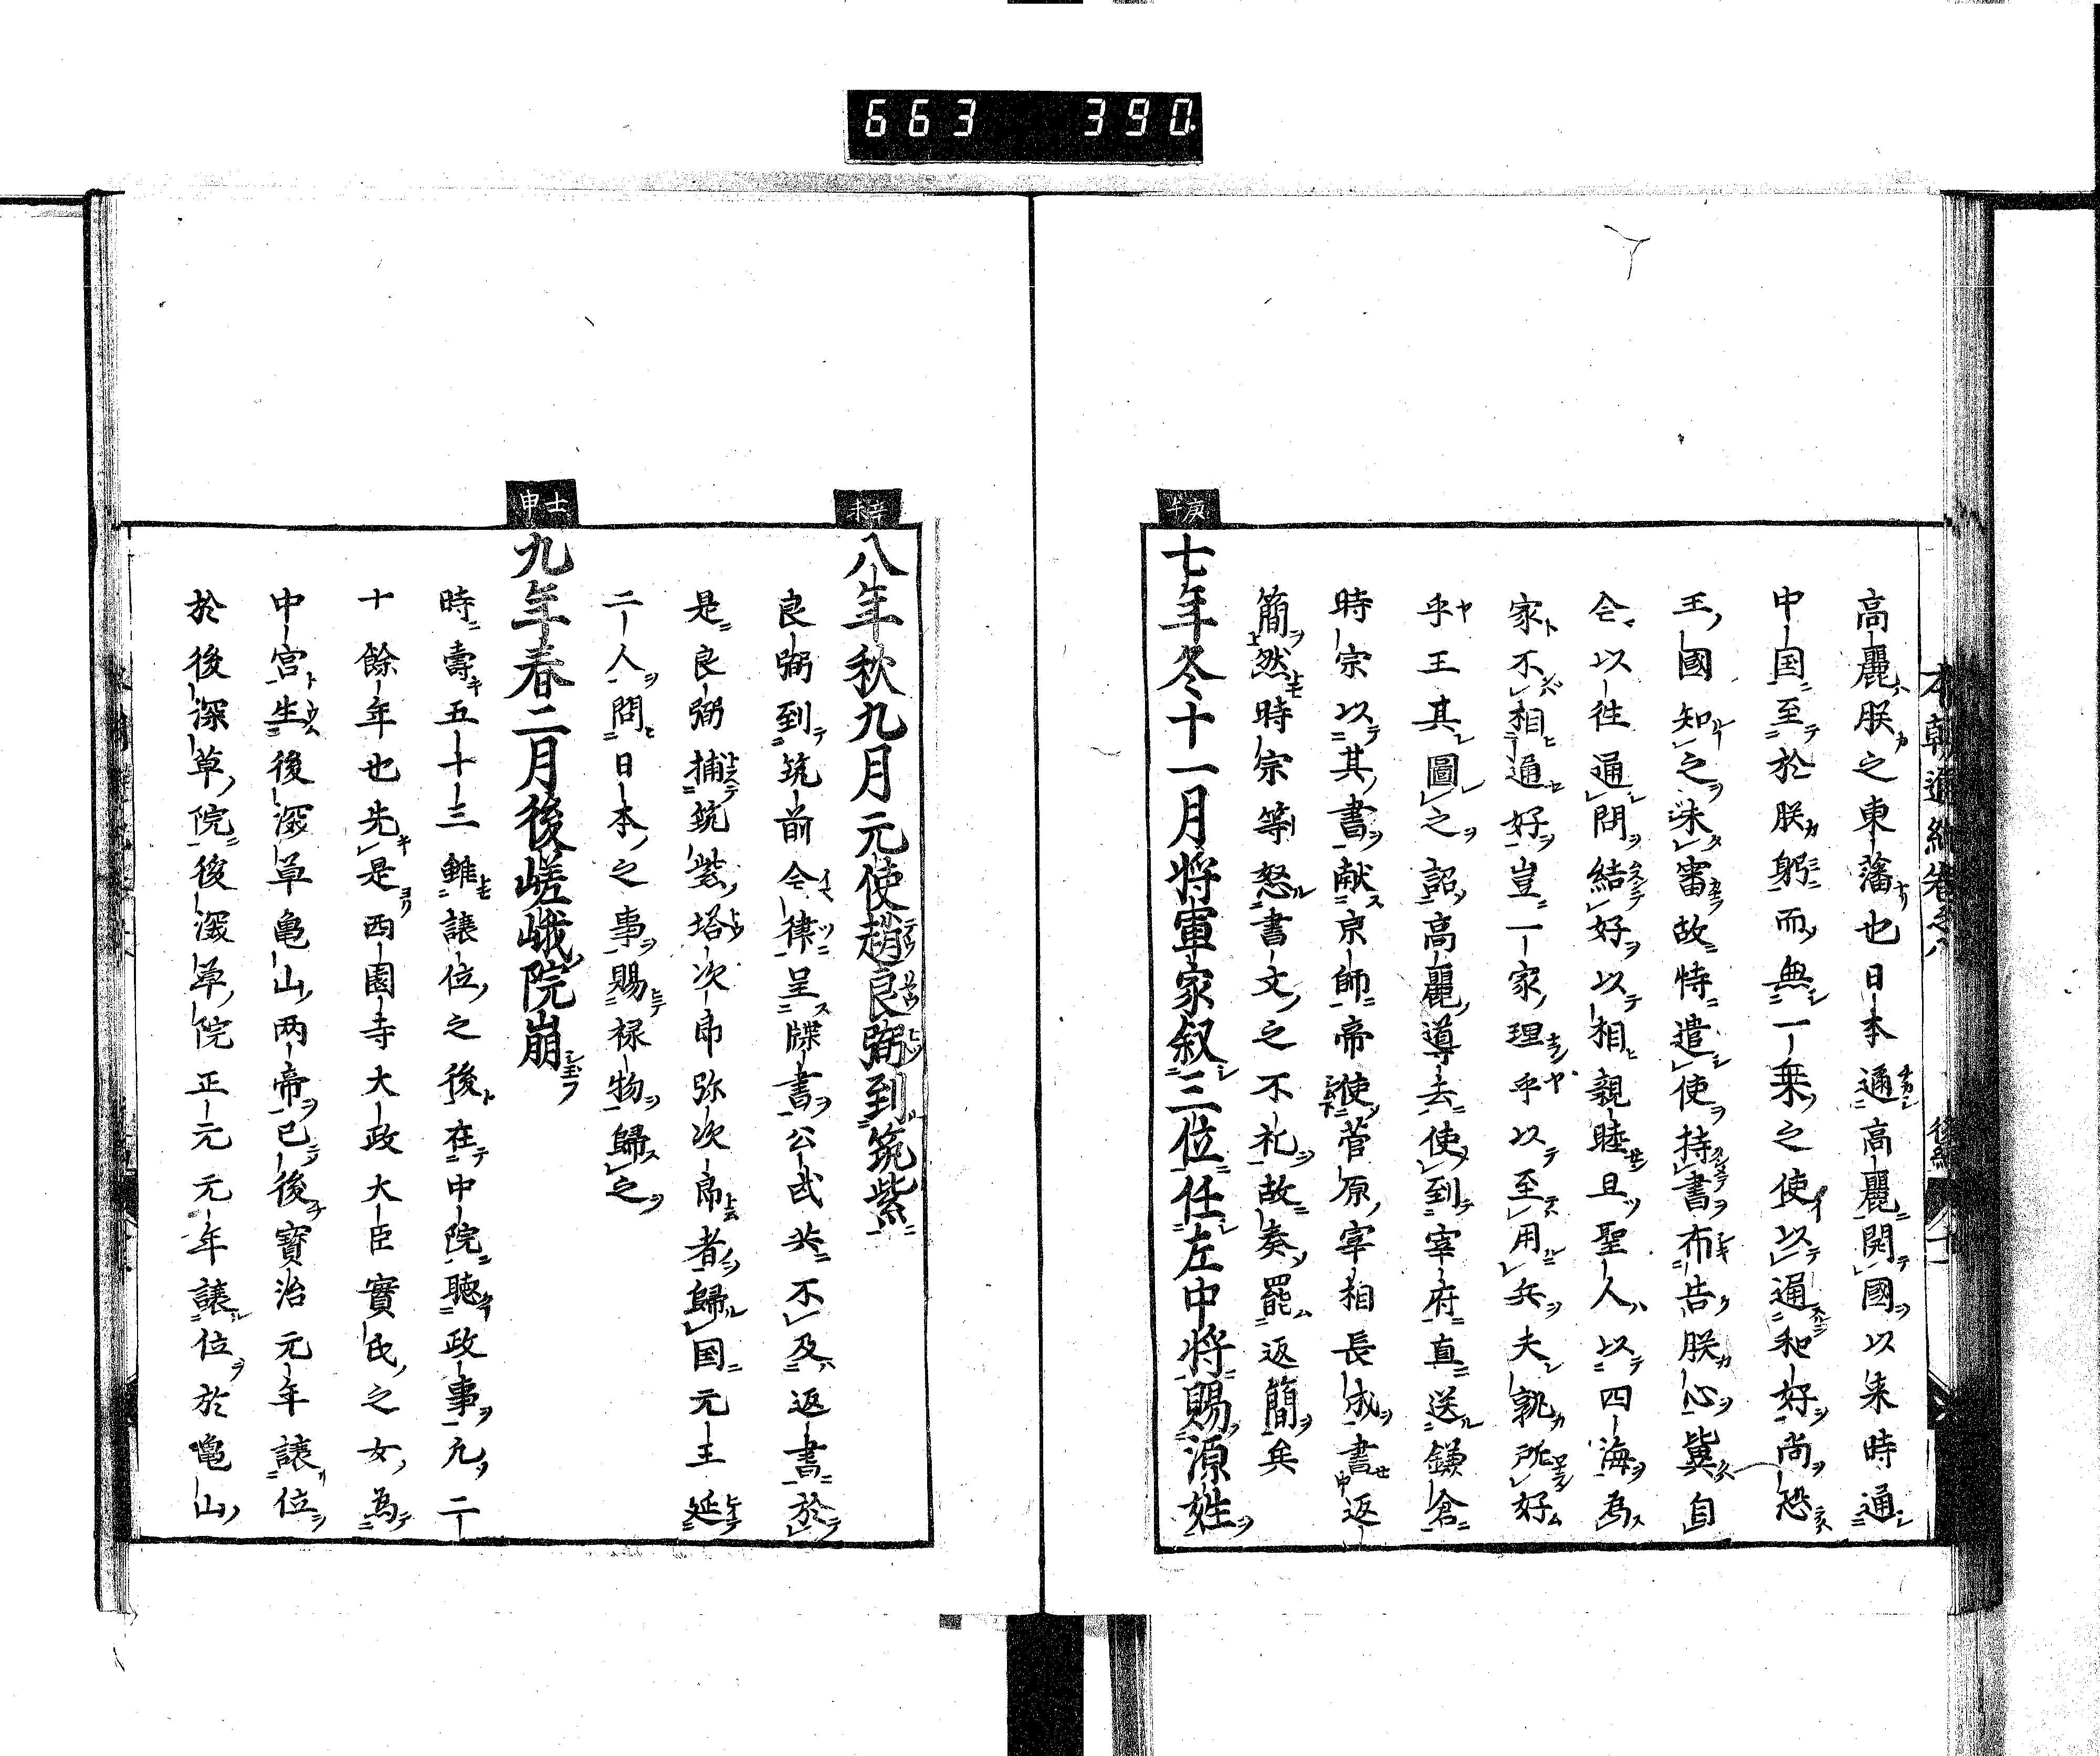 663 390
本朝通紀卷之八
高麗朕之東藩也日本通高麗開國以来時通
中国至於朕躬而無一乗之使以通和好尚恐
王國知之未審故特遣使持書布告朕心冀自
今以徃通問結好以相親睦且聖人以四海為
家不相通好豈一家理乎以至用兵夫孰所好
乎王其圖之詔高麗導去使到宰府直送鎌倉
時宗以其書献京師帝使菅原宰相長成書返
簡然時宗等怒書文之不礼故奏罷返簡矣
庚午
七年冬十一月将軍家叙三位任左中将賜源姓
辛未
八年秋九月元使趙良弼到筑紫
良弼到筑前今津呈牒書公武共不及返書於
是良弼捕筑紫塔次郎弥次郎者歸国元王延
二人問日本之事賜禄物歸之
壬申
九年春二月後嵯峨院崩
時壽五十三雖譲位之後在中院聴政事凢二
十餘年也先是西園寺大政大臣實氏之女為
中宮生後深草亀山两帝已後寳治元年譲位
於後深草院後深草院正元元年譲位於亀山